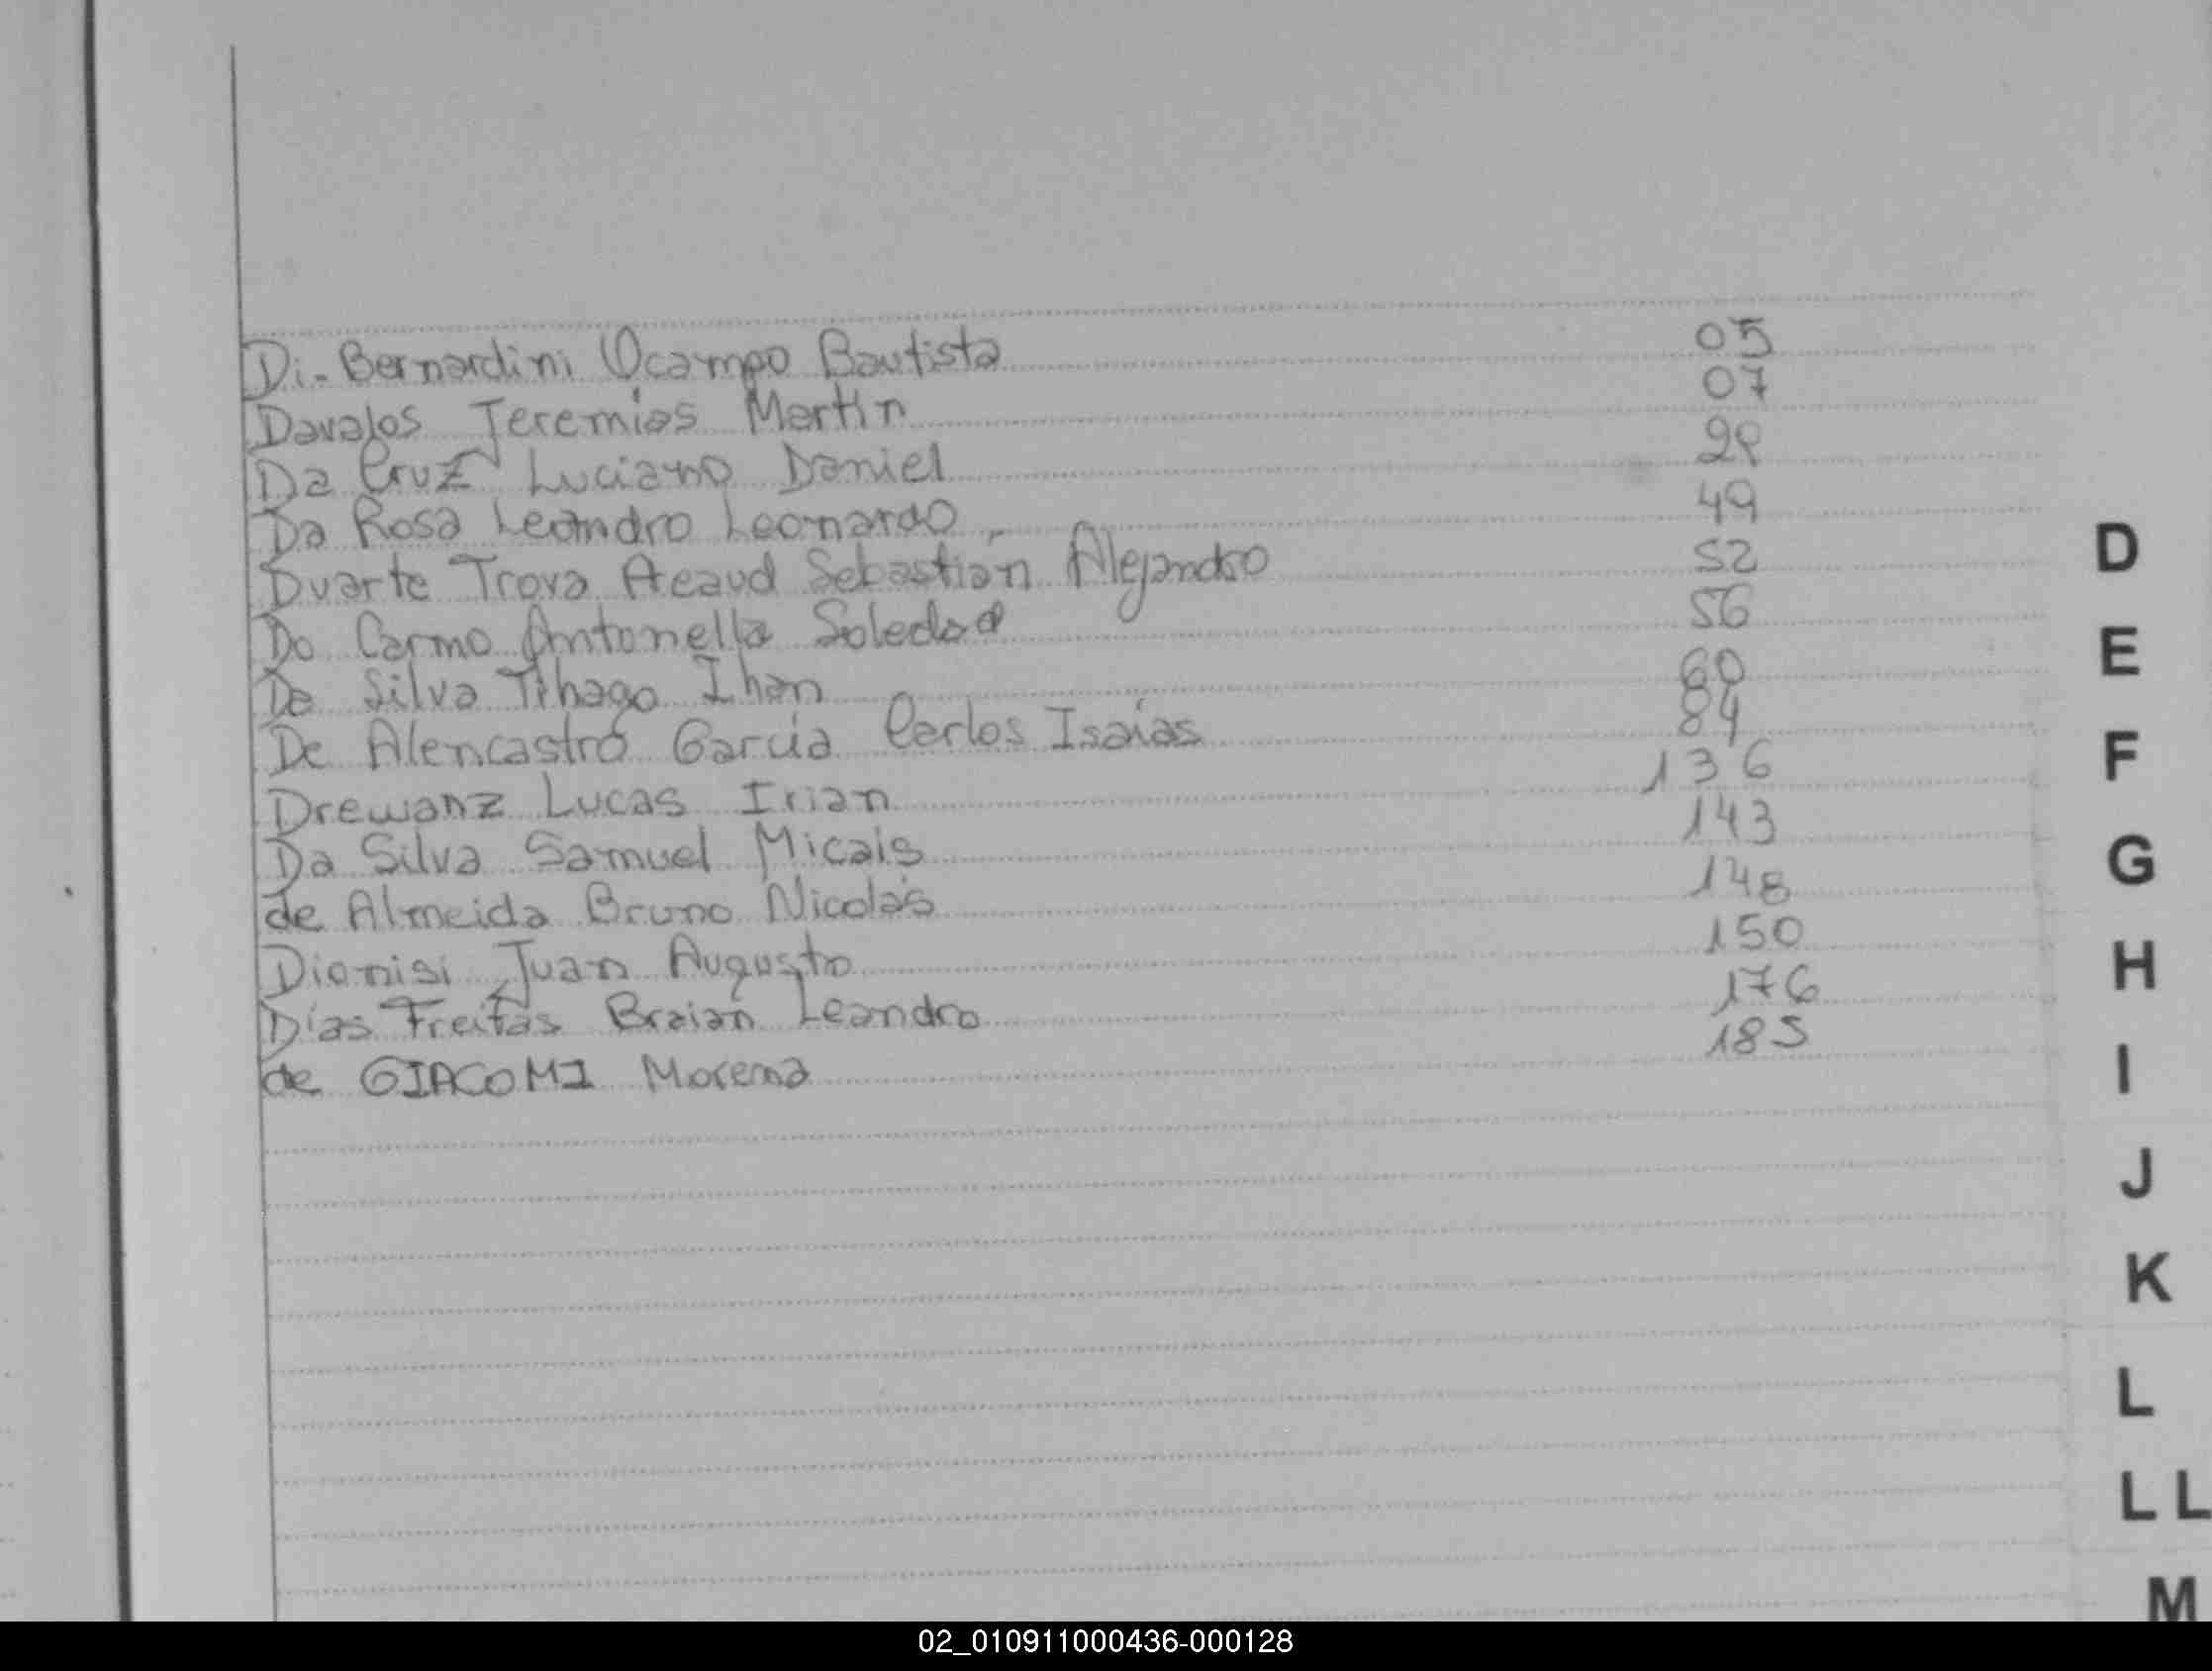 Di-Bernardini Ocampo Bautista 05
Davalos Jeremias Martin 07
Da Cruz Luciano Daniel 29
Da Rosa Leandro Leonardo 49
Duarte Trova Sebastián Alejandro 52
Do Carmo Antonella Soledad 56
Da Silva Tihago Ihan 60
De Alencastro Garcia Carlos Isaías 84
Drewanz Lucas Irian 136
Da Silva Samuel Micais 143
de Almeida Bruno Nicolás 148
Dionisi Juan Augusto 150
Días Freitas Braian Leandro 176
de GIACOMI Morena 185
D
E
F
G
H
I
J
K
L
LL
M
02_010911000436-000128